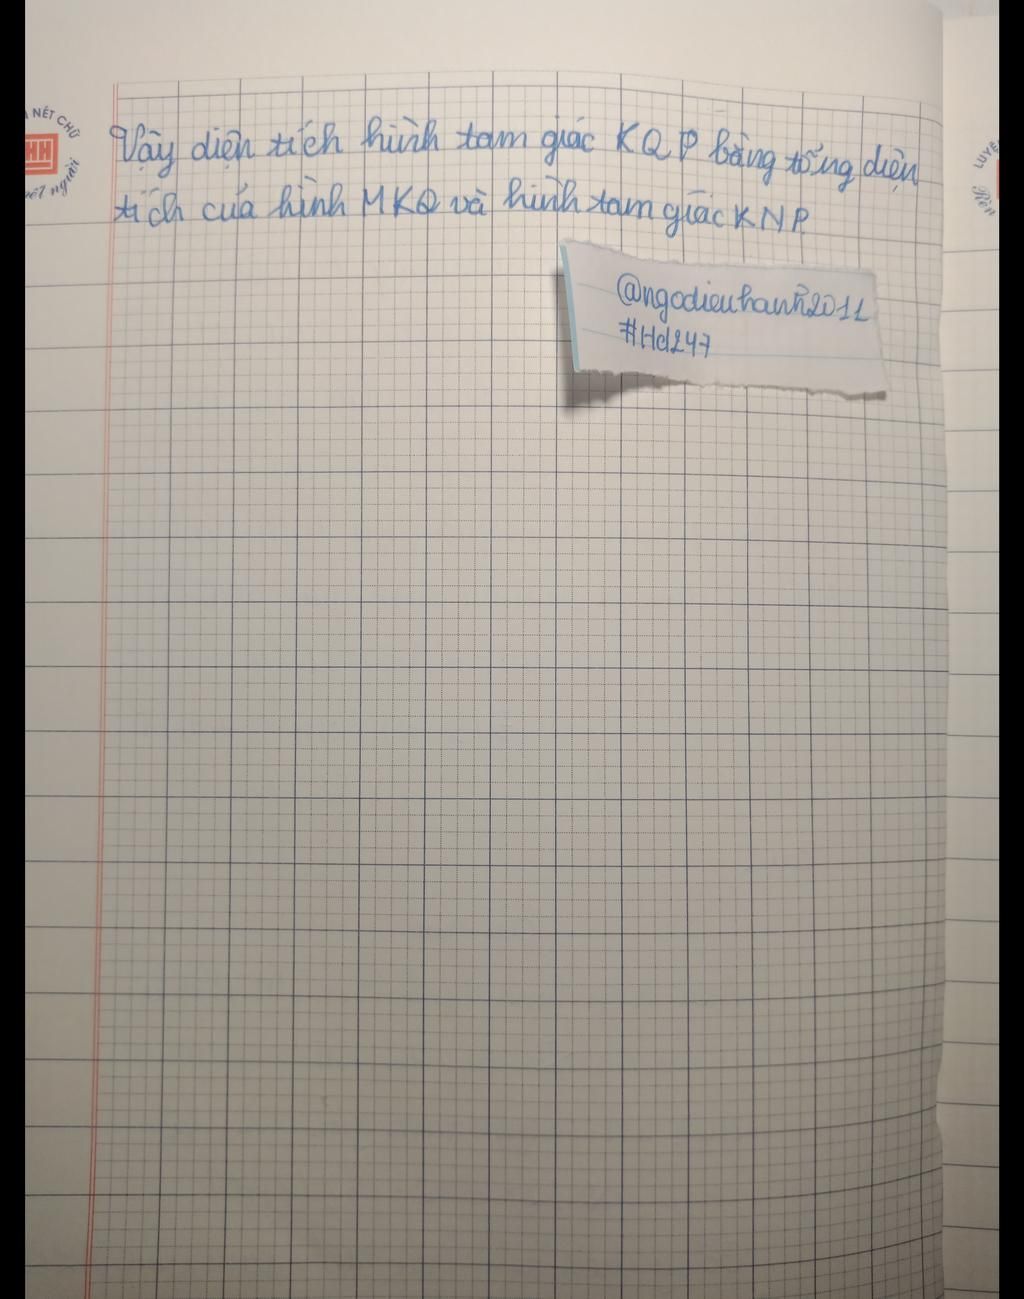 NÉT CHỮ
HH
nết người
Vậy diện tích hình tam giác KQP bằng tổng diện
tích của hình MKQ và hình tam giác KNP
@ngodieuhanh2011
#Hd247
LUYỆ
Rèn